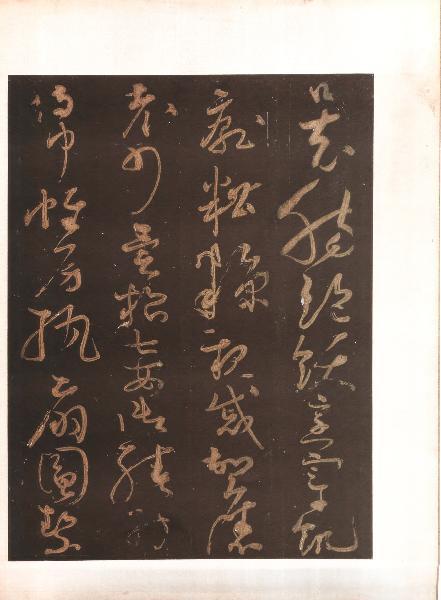 口充腸飽飫烹宰飢
厭糟糠親戚故舊
老少異糧妾御績紡
侍巾帷房紈扇圓絜